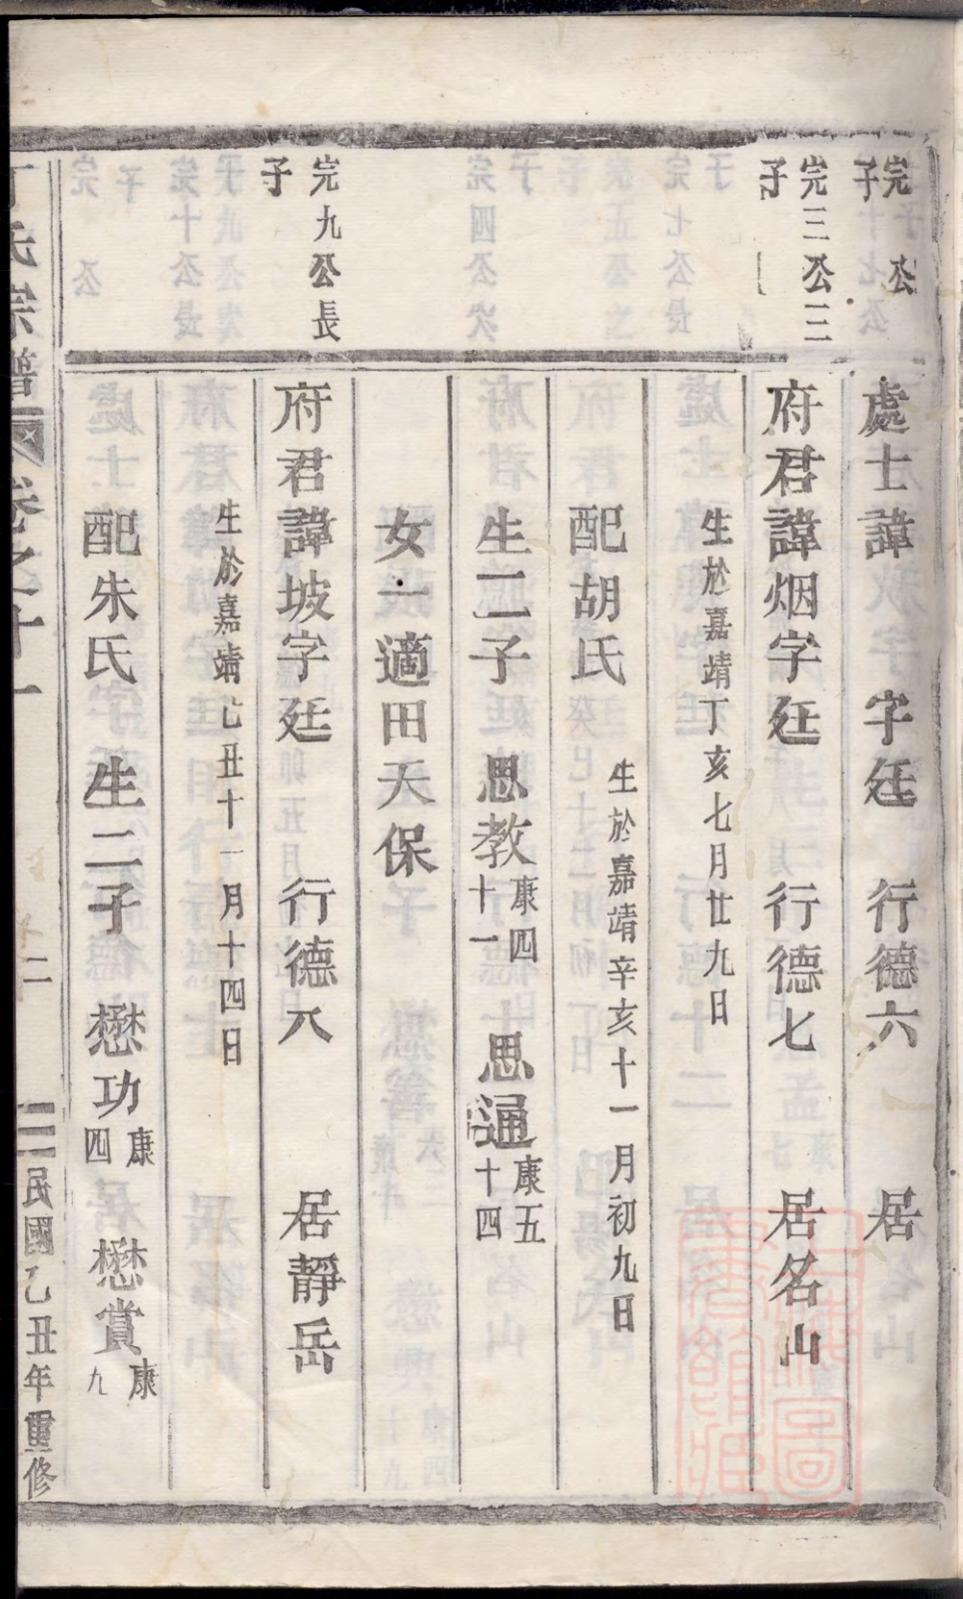 完　公
子
處士諱　字廷　行德六　居
完三公三
子
府君諱烟字廷　行德七　居名山
生於嘉靖丁亥七月廿九日
配胡氏　生於嘉靖辛亥十一月初九日
生二子　思教康四十一　思通康五十四
女一適田天保
完九公長
子
府君諱坡字廷　行德八　居靜岳
生於嘉靖乙丑十一月十四日
配朱氏　生二子　懋功康四　懋賞康九
丁氏宗譜　卷之十一　二　民國乙丑年重修